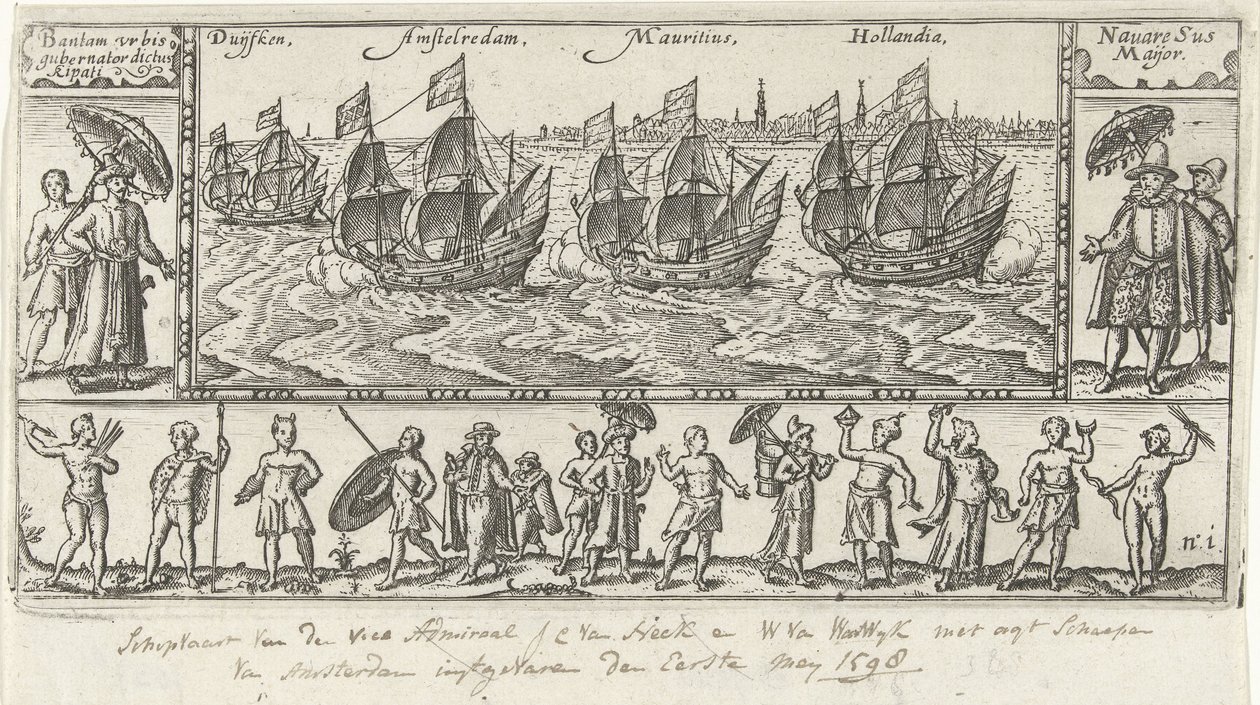 Bantam vrbis
gubernator dictus
Kipati
Duijfken,
Amstelredam,
Mauritius,
Hollandia,
Navare Sus
Maijor.
n. i.
Schipvaart van den vice Admiraal J C van Neck en W van Warwyk met agt Scheepen
van Amsterdam uijtgevaren den Eerste meij 1598